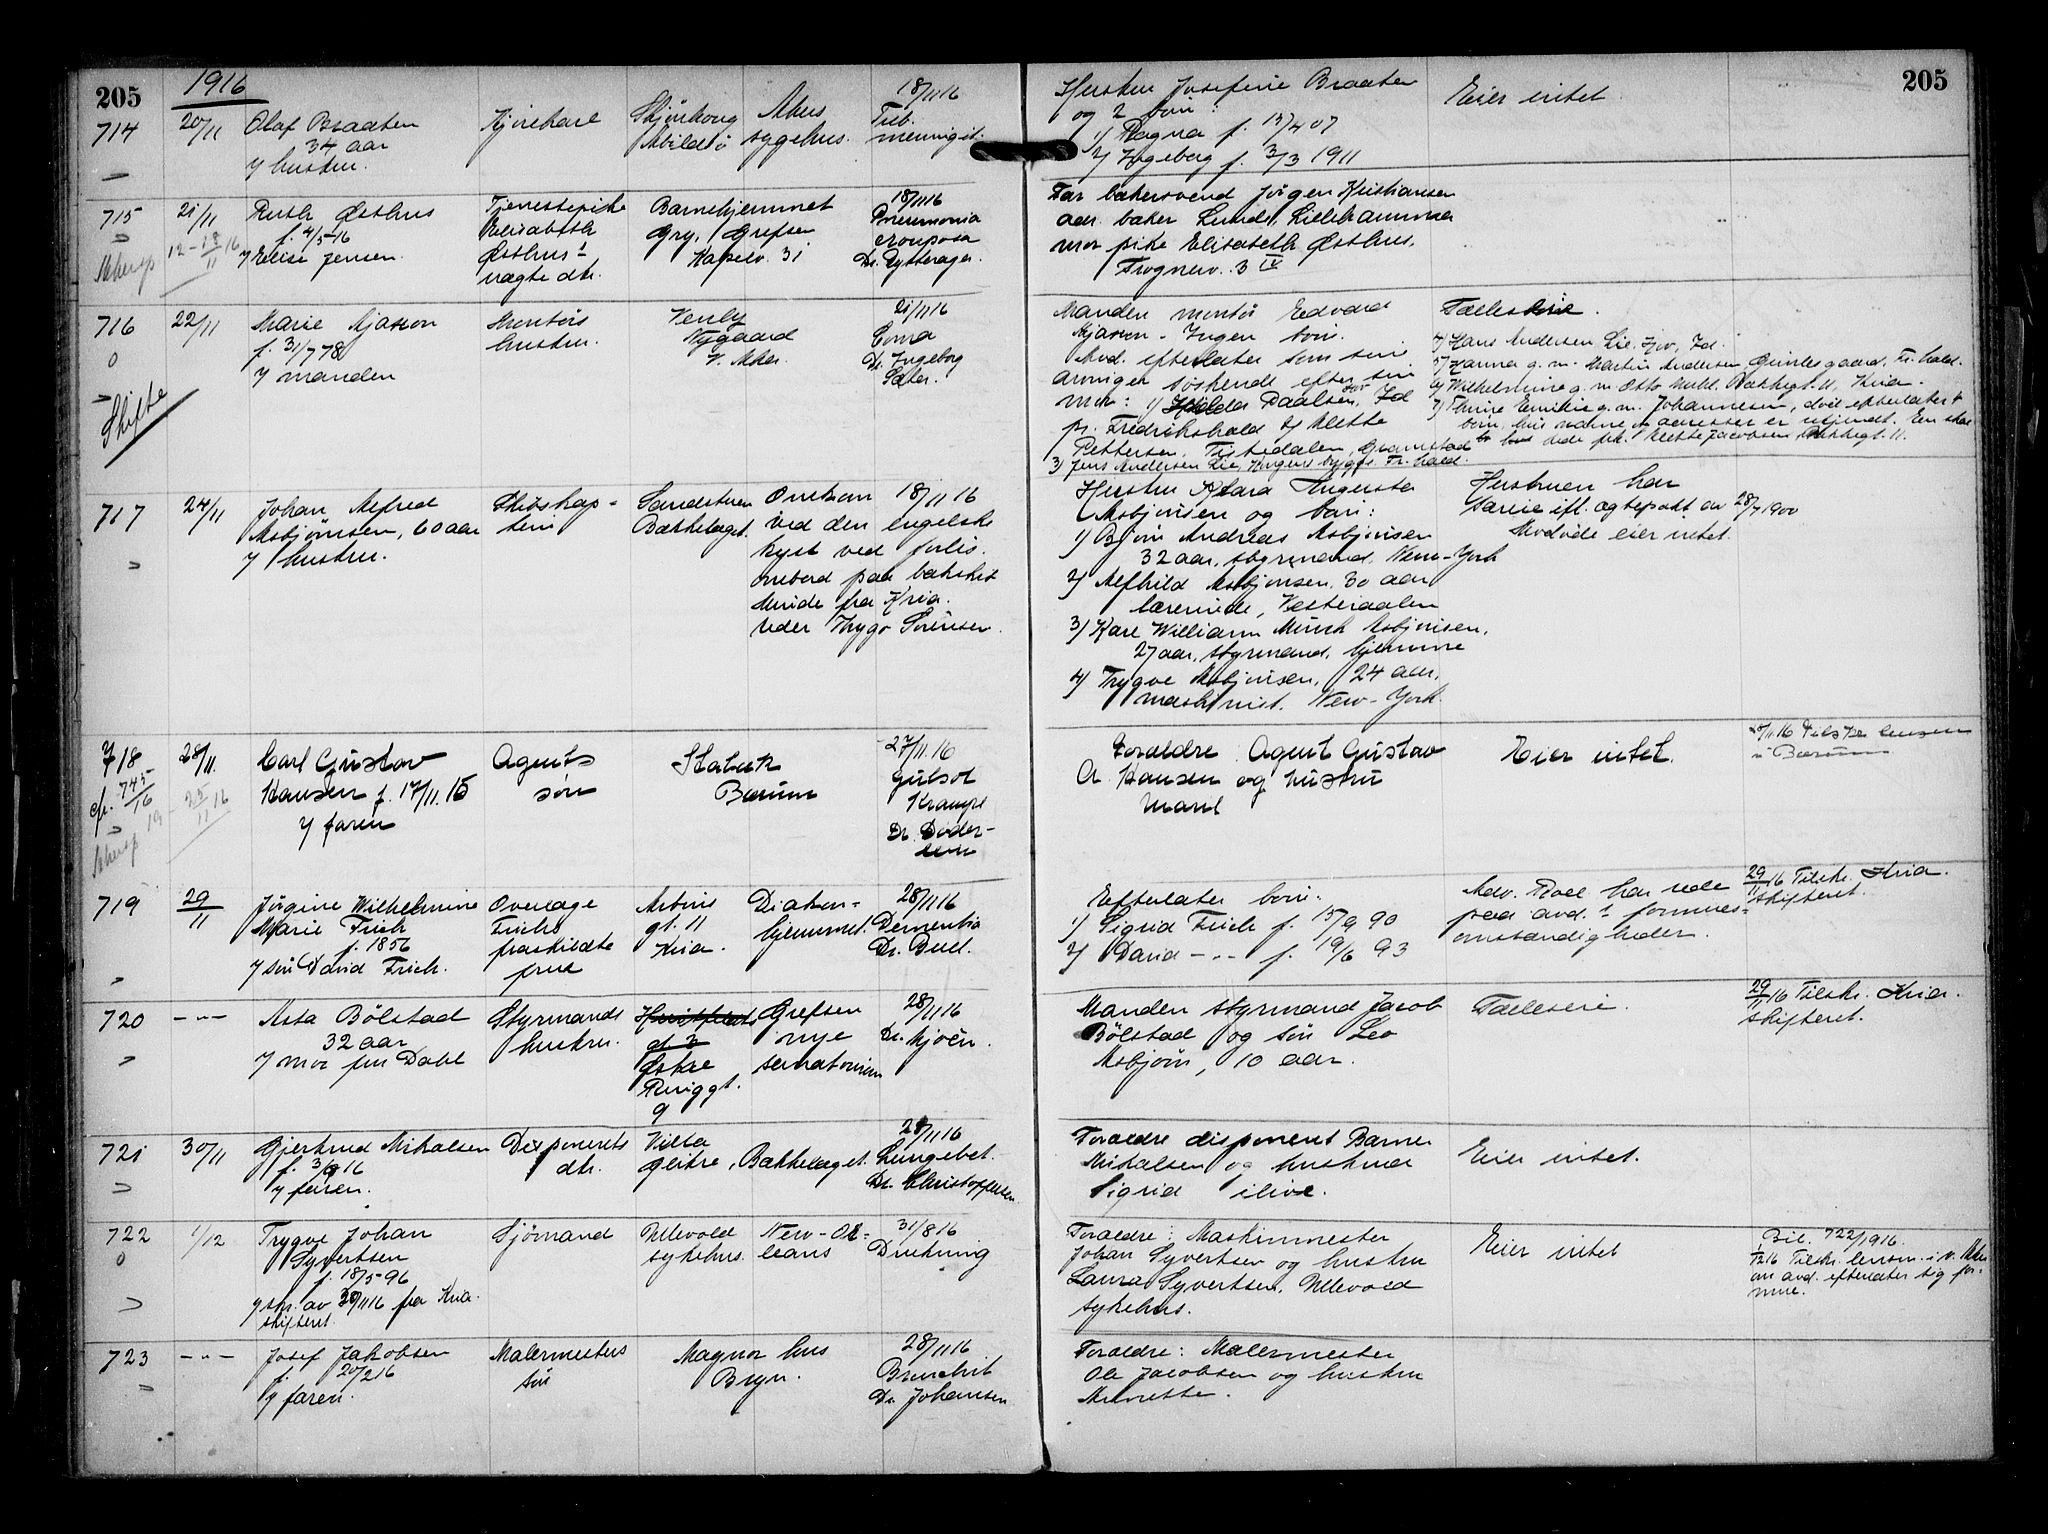 205
1916
205
714
20/11
Olaf Braaten
34 aar
v/ hustru.
Kjørekarl
Abildsø
Akers
sygehus.
18/11 16
Tub.
meningit.
Hustru Josefine Braaten
og 2 barn:
1) Ragna f. 15/4 07
2) Ingeborg f. 3/3 1911
Eier intet
715
21/11
Ruth Østhus
f. 4/5 16
v/ Elise Jensen.
12 - 18/11 16
Tjenestepike
Elisabeth
Østhus'
uægte dtr.
Barnehjemmet
Gry, Grefsen
Kapelv. 31
18/11 16
Pneumonia
crouposa
Dr. Rytterager.
Far bakersvend Jörgen Kristiansen
adr. baker Lund, Lillehammer
mor pike Elisabeth Østhus,
Frognerv. 3 IV
716
22/11
Marie Mjasson
f. 31/7 78
v/ manden
Skifte
Montørs
hustru.
Nygaard
V. Aker.
21/11 16
Coma
Dr. Ingeborg
Sæter.
Manden montør Edvard
Mjasson - Ingen barn.
Avd. efterlater som sine
arvinger søskende efter sin
mor: 1) Hilda Paalsen, Id
pr. Fredrikshald 2) Mette
Pettersen, Tistedalen, Grimstad
3) Jens Andersen Lie, Kongens brygge Fr.hald.
Fælleseie.
4) Hans Andersen Lie, Id.
5) Hanna g. m. Martin Andersen, Fr. hald.
6) Wilhelmine g. m. Otto Bakkegt. 11, Kria.
7) Thrine Emilie g. m. Johannesen, død efterlater
barn, hvis navne og adresser er ukjendt. En skal
Mette Jacobsen Bakkegt. 11.
717
24/11
Johan Alfred
Asbjørnsen, 60 aar
v/ hustru.
Skibskap-
tein
Sandstuen
Bækkelaget.
Omkom 18/11 16
ved den engelske
kyst ved forlis
ombord paa barkskib
fra Kria.
reder Thygo Sørensen.
Hustru Klara Augusta
Asbjørnsen og barn:
1) Bjørn Andreas Asbjørnsen
32 aar, styrmand, New-York
2) Alfhild Asbjørnsen, 30 aar
lærerinde, Vesteraalen
3) Karl William Münch Asbjørnsen,
27 aar, styrmand, hjemme
4) Trygve Asbjørnsen, 24 aar,
maskinist. New-York.
Hustruen har
særeie ifl. ægtepakt av 28/7 1900
Avdøde eier intet.
718
cfr. 745/16
28/11.
25/11 16
Carl Gustav
Hansen f. 17/11. 15
v/ faren
Agents
søn
Stabæk
Bærum
27/11. 16
Gulsot
Krampe
Dr. Døder-
lein
Forældre Agent Gustav
A. Hansen og hustru
Marie
Eier intet.
28/11. 16 Tilskr. lensm.
i Bærum
719
29/11
Jørgine Wilhelmine
Marie Frich
f. 1856
v/ søn David Frich.
Overlæge
Frichs
fraskildte
frue
Arbins
gt. 11
Kria.
Diakon-
hjemmet.
28/11 16
Dementia
Dr. Bull.
Efterlater barn:
1) Sigrid Frich f. 15/9 90
2) David -"- f. 19/6 93
Adv. Roll har rede
paa avd.s formues-
omstændigheder.
29/11 16 Tilskr. Kria.
skifteret.
720
-"-
Asta Bölstad
32 aar
v/ mor fru Dahl
Styrmands
hustru.
gt. 3
Østre
Ringgt.
9
Grefsen
nye
sanatorium
28/11 16
Dr. Mjøen.
Manden styrmand Jacob
Bölstad og søn Leo
Asbjørn, 10 aar.
Fælleseie.
29/11 16 Tilskr. Kria.
skifteret.
721
30/11
Gjertrud Mikalsen
f. 3/9 16
v/ faren.
Disponents
dtr.
Villa
Glitre, Bækkelaget.
28/11 16
Lungebet.
Dr. Christoffersen
Forældre disponent Barner
Mikalsen og hustru
Sigrid ilive.
Eier intet.
722
1/12
Trygve Johan
Syvertsen
f. 18/5 96
v/ skr. av 28/11 16 fra Kria.
skifteret.
Sjømand
Ullevold
sykehus.
New-Or-
leans
31/8 16
Drukning
Forældre: Maskinmester
Johan Syvertsen og hustru
Laura Syvertsen, Ullevold
sykehus.
Eier intet
Bil. 722/1916.
1/12 16 Tilskr. lensm. i V. Aker
om avd. efterlater sig for-
mue.
723
-"-
Josef Jakobsen
f. 20/2 16
v/ faren.
Malermesters
søn
Magnor hus
Bryn.
28/11 16
Bronchit
Dr. Johansen
Forældre: Malermester
Ole Jacobsen og hustru
Annette.